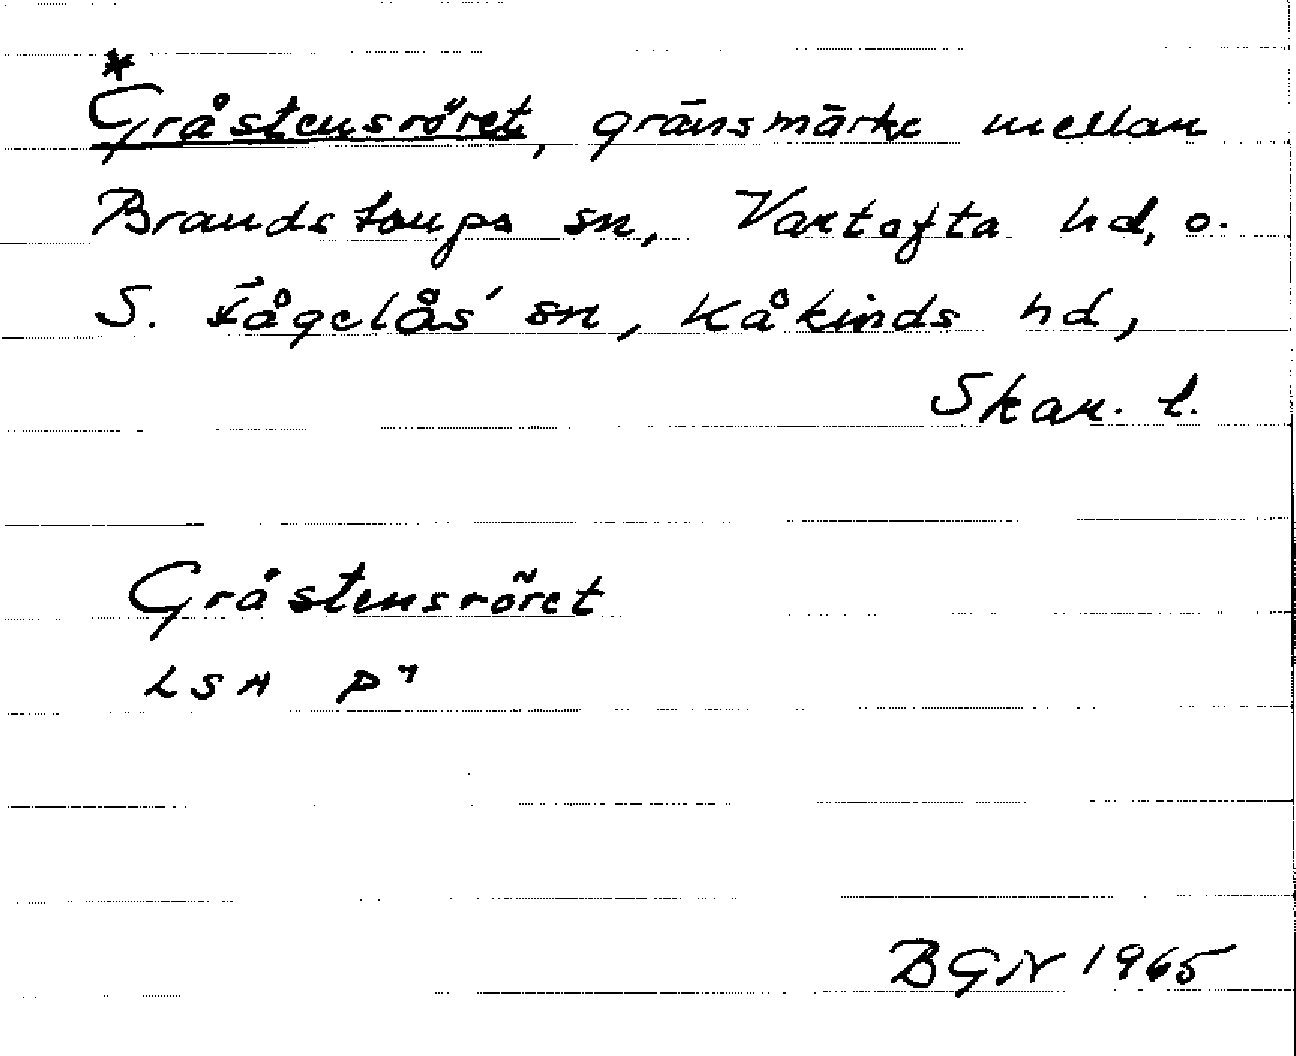 *
Gråstensröret, gränsmärke mellan
Brandstorps sn, Vartofta hd, o.
S. Fågelås' sn, Kåkinds hd,
Skar. l.
Gråstensröret
LSA P"
BGN 1965